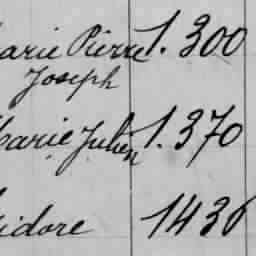 Marie Pierre 1.300
Joseph
Marie Julien 1.370
Isidore 1436